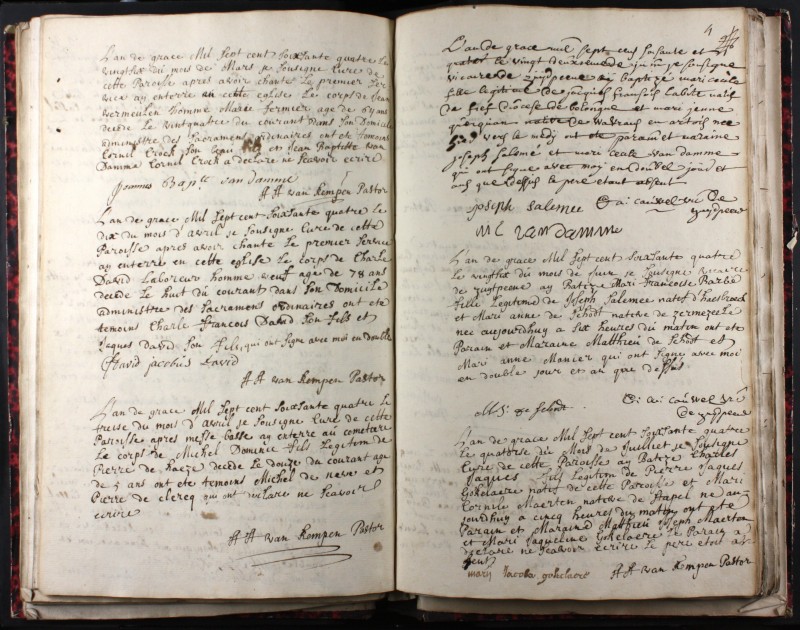 L'an de grace Mil Sept cent Soixante quatre Le
vingt six du mois de Mars je Soussigne Cure de
cette Paroisse apres avoir chante Le premier Ser
vice ay enterre en cette eglise Le corps de Jean
vermeulen homme Marie fermier age de 67 ans
decede Le vint quatre du courant dans son Domicile
administre des Sacramens ordinaires ont ete temoins
Cornil Crock son beau fils et Jean Baptiste van
Damme Cornil Crock a declare ne scavoir ecrire
Joannes Bap.te van damme
A A van Kempen Pastor
L'an de grace Mil Sept cent Soixsante quatre Le
dix du mois d'avril je Soussigne Cure de cette
Paroisse apres avoir chante Le premier Service
ay enterre en cette eglise Le corps de Charle
David Laboreur homme veuf age de 78 ans
decede Le huit du courant dans son Domicile
administre des Sacramens ordinaires ont ete
temoins Charle francois David son fils et
Jaques David son fils, qui ont signe avec moi en double
David jacobus David
A A van Kempen Pastor
L'an de grace Mil Sept cent Soixsante quatre Le
treise du mois d'avril je Soussigne Cure de cette
Paroisse apres messe basse ay enterre au cometiere
Le corps de Michel Dominic fils Legitim de
Pierre de haeze decede Le douze du courant age
de 5 ans ont ete temoins Michel de neve et
Pierre de clercq qui ont declare ne scavoir
ecrire
A A van Kempen Pastor
4
L'an de grace mil septz cens soisante et
quatre le vingt deuxsieme de juin je sousigne
vicaire de zuijtpeene aij baptze mari cecile
fille legitime de jacques francois Labitte natif
de fief diocese de bologne et mari jenne
querquian native de Wavrans en artois nee
vers le midij ont ete parain et maraine
joseph salomé et mari cecile van damme
qui ont signe avec moij en doubel jour et
ans que dessus le pere etant absent
joseph salemee D ai cauwel vic de
zuijtpeene
M C vandamme
L'an de grace Mil Sept cent Soixsante quatre
Le vingt six du mois de Juin je Sousigne vicaire
de zuijtpeene ay Batize Mari francoise Barbe
fille Legitime de Joseph Salemee natif d'haesbroeck
et Mari anne de Schodt native de zermezeele
nee aujourdhuy a six heures du matin ont ete
Parain et Maraine Matthieu de Schodt et
Mari anne Monier qui ont signe avec moi
en double jour et an que dessus
M. de schodt. D ai cauwel vic
de zuijtpeene
L'an de grace Mil Sept cent Soixsante quatre
Le quatorse du Mois de Juillet je Soussigne
Cure de cette Paroisse ay Batize Charles
Jaques fils Legitim de Pierre Jaques
Gokelaere natif de cette Paroisse et Mari
Cornile Maerten native de Stapel ne au-
jourdhuy a cinq heures du matin ont ete
Parain et Maraine Matthieu Joseph Maerten
et Mari Jaqueline Gokelaere Le Parain a
declare ne scavoir ecrire Le pere etoit ab
sent
marij Jacoba gokelaere A A van Kempen Pastor